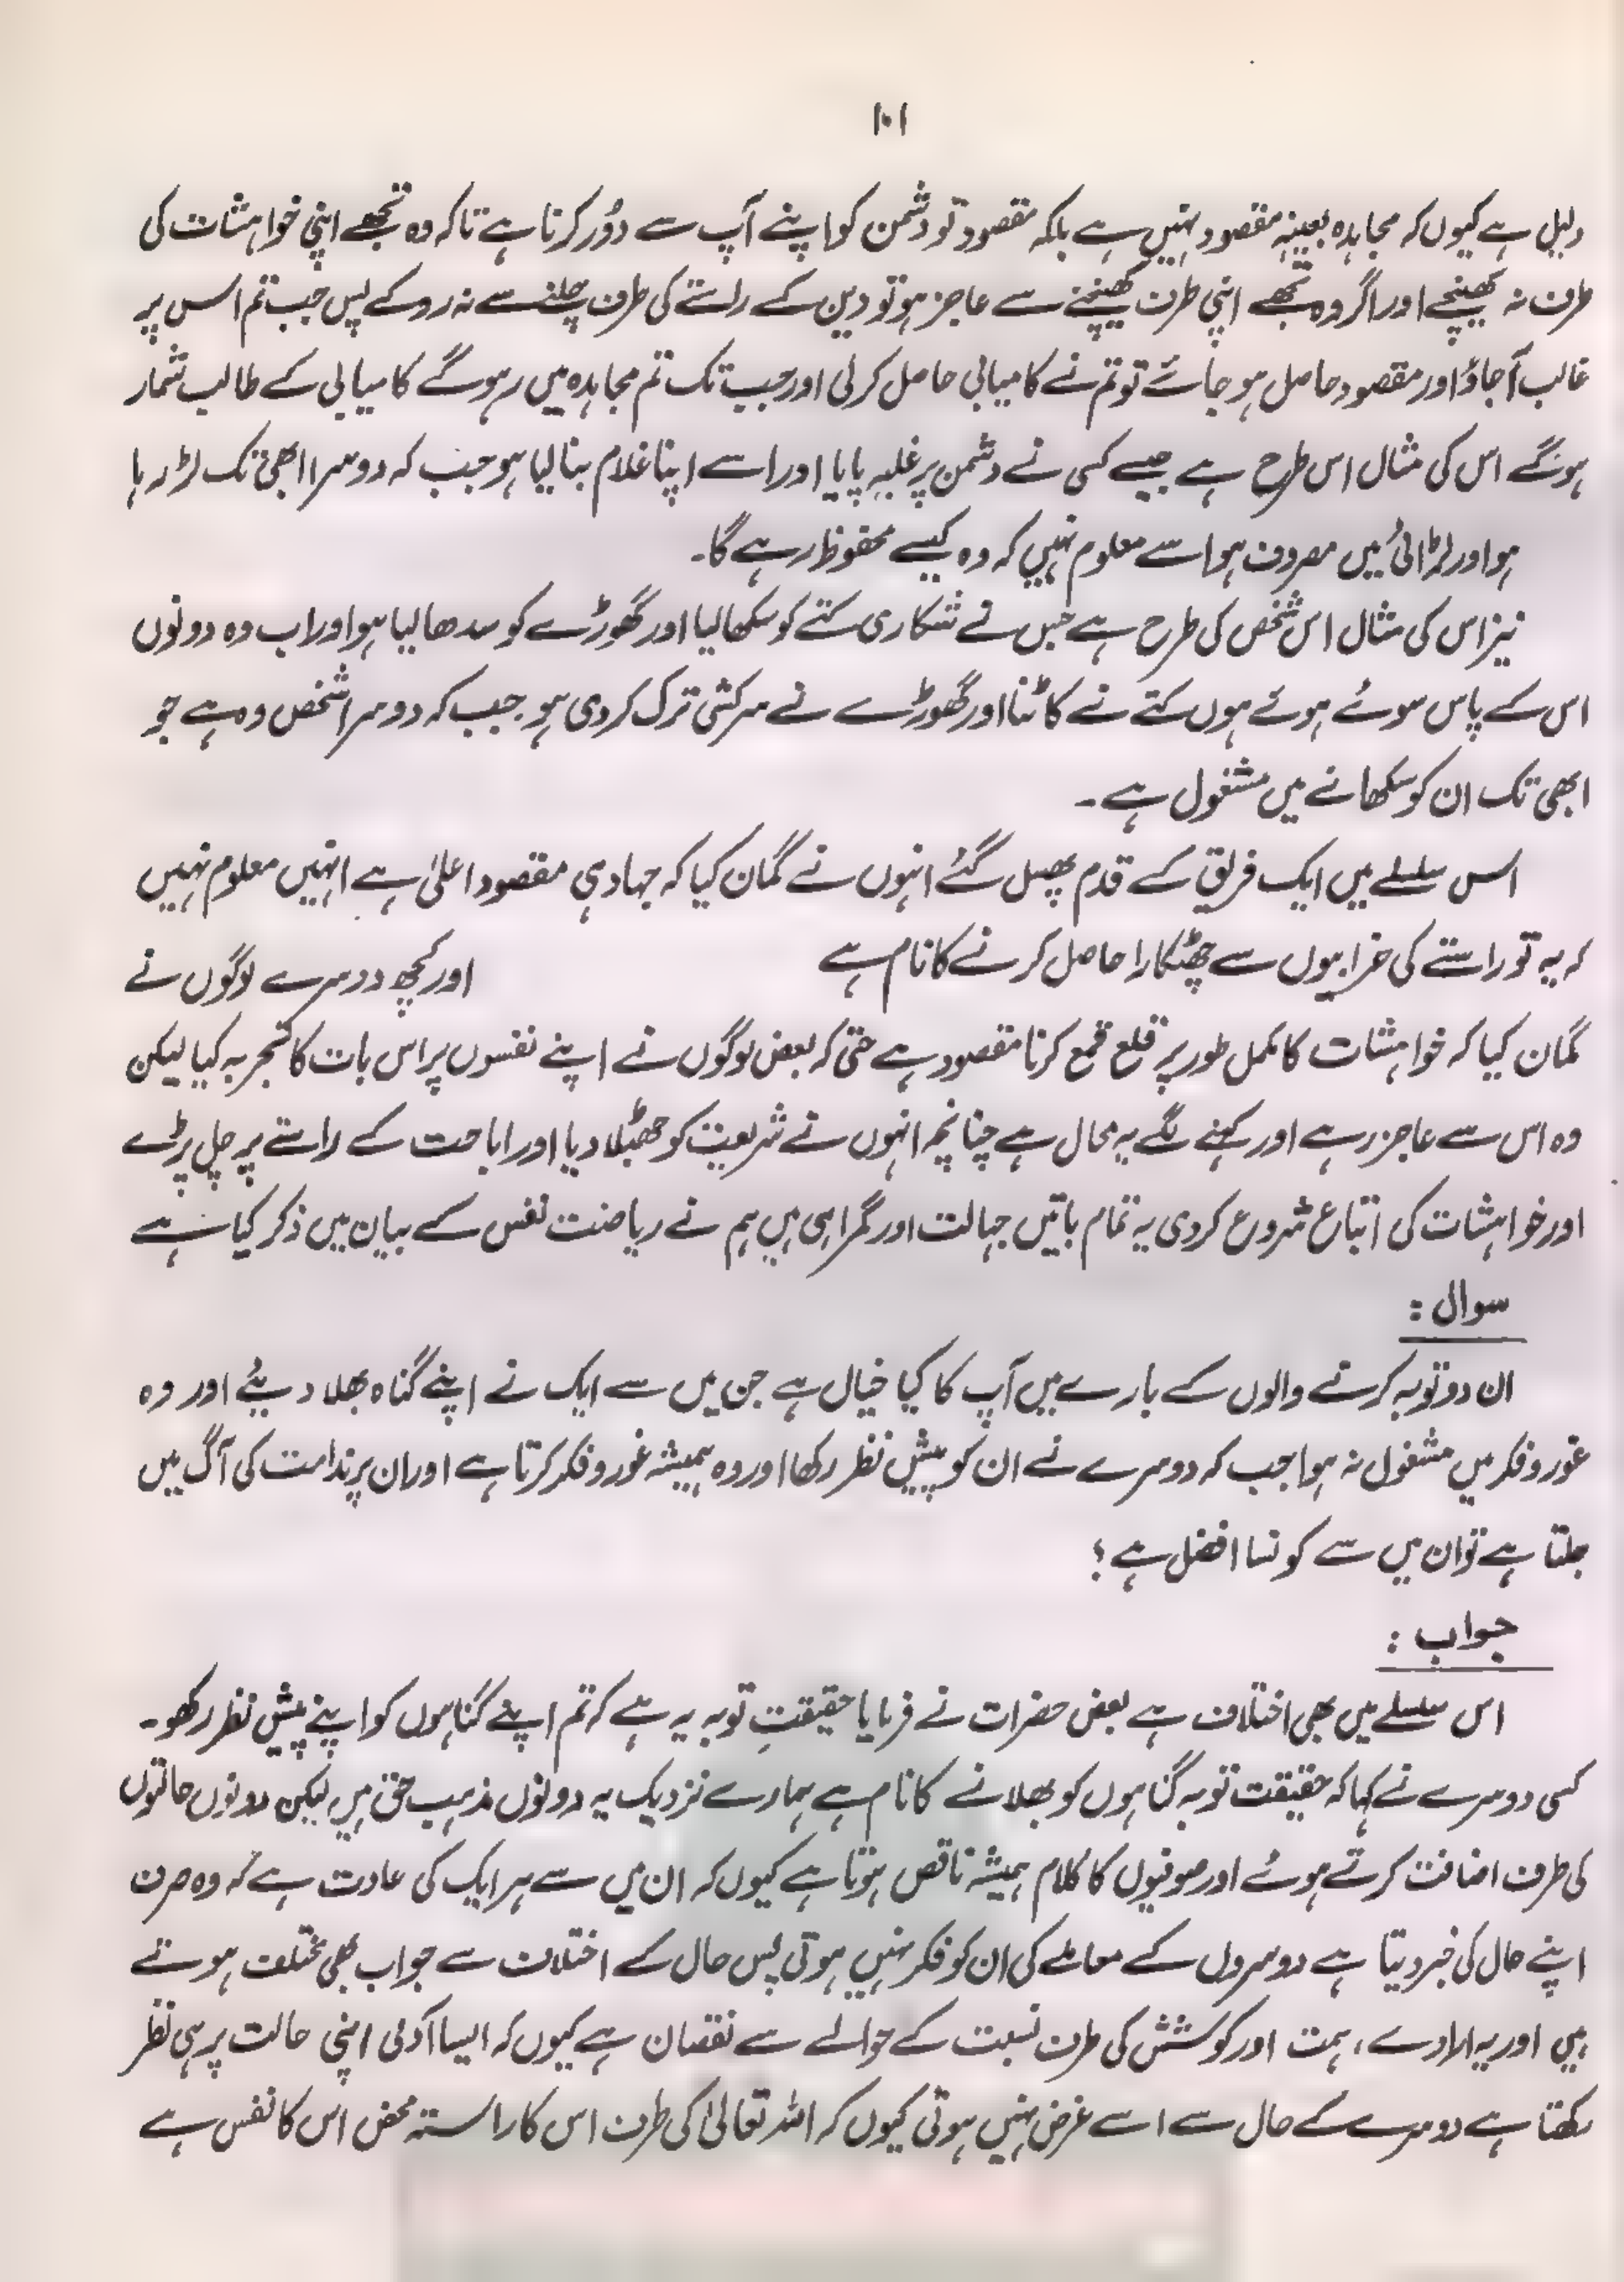 ۱۰۱
دلیل ہے کیوں کہ مجاہدہ بعینہٖ مقصود نہیں ہے بلکہ مقصود تو دشمن کو اپنے آپ سے دُور کرنا ہے تاکہ وہ تجھے اپنی خواہشات کی
طرف نہ کھینچے اور اگر وہ تجھے اپنی طرف کھینچنے سے عاجز ہو تو دین کے راستے کی طرف چلنے سے نہ روکے پس جب تم اس پر
غالب آجاؤ اور مقصود حاصل ہو جائے تو تم نے کامیابی حاصل کرلی اور جب تک تم مجاہدہ میں رہو گے کامیابی کے طالب شمار
ہونگے اس کی مثال اس طرح ہے جیسے کسی نے دشمن پر غلبہ پایا اور اسے اپنا غلام بنا لیا ہو جب کہ دوسرا ابھی تک لڑ رہا
ہو اور لڑائی میں مصروف ہو اسے معلوم نہیں کہ وہ کیسے محفوظ رہے گا۔
نیز اس کی مثال اس شخص کی طرح ہے جس نے شکاری کتے کو سکھا لیا اور گھوڑے کو سدھا لیا ہو اور اب وہ دونوں
اس کے پاس سوئے ہوئے ہوں کتے نے کاٹنا اور گھوڑے نے سرکشی ترک کردی ہو جب کہ دوسرا شخص وہ ہے جو
ابھی تک ان کو سکھانے میں مشغول ہے۔
اس سلسلے میں ایک فریق کے قدم پھسل گئے انہوں نے گمان کیا کہ جہاد ہی مقصود اعلیٰ ہے انہیں معلوم نہیں
کہ یہ تو راستے کی خرابیوں سے چھٹکارا حاصل کرنے کا نام ہے اور کچھ دوسرے لوگوں نے
گمان کیا کہ خواہشات کا مکمل طور پر قلع قمع کرنا مقصود ہے حتیٰ کہ بعض لوگوں نے اپنے نفسوں پر اس بات کا تجربہ کیا لیکن
وہ اس سے عاجز رہے اور کہنے لگے یہ محال ہے چنانچہ انہوں نے شریعت کو جھٹلا دیا اور اباحت کے راستے پر چل پڑے
اور خواہشات کی اتباع شروع کردی یہ تمام باتیں جہالت اور گمراہی ہیں ہم نے ریاضت نفس کے بیان میں ذکر کیا ہے
سوال :
ان دو توبہ کرنے والوں کے بارے میں آپ کا کیا خیال ہے جن میں سے ایک نے اپنے گناہ بھلا دیئے اور وہ
غور و فکر میں مشغول نہ ہوا جب کہ دوسرے نے ان کو پیش نظر رکھا اور وہ ہمیشہ غور و فکر کرتا ہے اور ان پر ندامت کی آگ میں
جلتا ہے تو ان میں سے کونسا افضل ہے ؟
جواب :
اس سلسلے میں بھی اختلاف ہے بعض حضرات نے فرمایا حقیقتِ توبہ یہ ہے کہ تم اپنے گناہوں کو اپنے پیش نظر رکھو۔
کسی دوسرے نے کہا کہ حقیقت توبہ گناہوں کو بھلانے کا نام ہے ہمارے نزدیک یہ دونوں مذہب حق ہیں لیکن دونوں حالتوں
کی طرف اضافت کرتے ہوئے اور صوفیوں کا کلام ہمیشہ ناقص ہوتا ہے کیوں کہ ان میں سے ہر ایک کی عادت ہے کہ وہ صرف
اپنے حال کی خبر دیتا ہے دوسروں کے معاملے کی ان کو فکر نہیں ہوتی پس حال کے اختلاف سے جواب بھی مختلف ہوتے
ہیں اور یہ ارادے ، ہمت اور کوشش کی طرف نسبت کے حوالے سے نقصان ہے کیوں کہ ایسا آدمی اپنی حالت پر ہی نظر
رکھتا ہے دوسرے کے حال سے اسے غرض نہیں ہوتی کیوں کہ اللہ تعالیٰ کی طرف اس کا راستہ محض اس کا نفس ہے